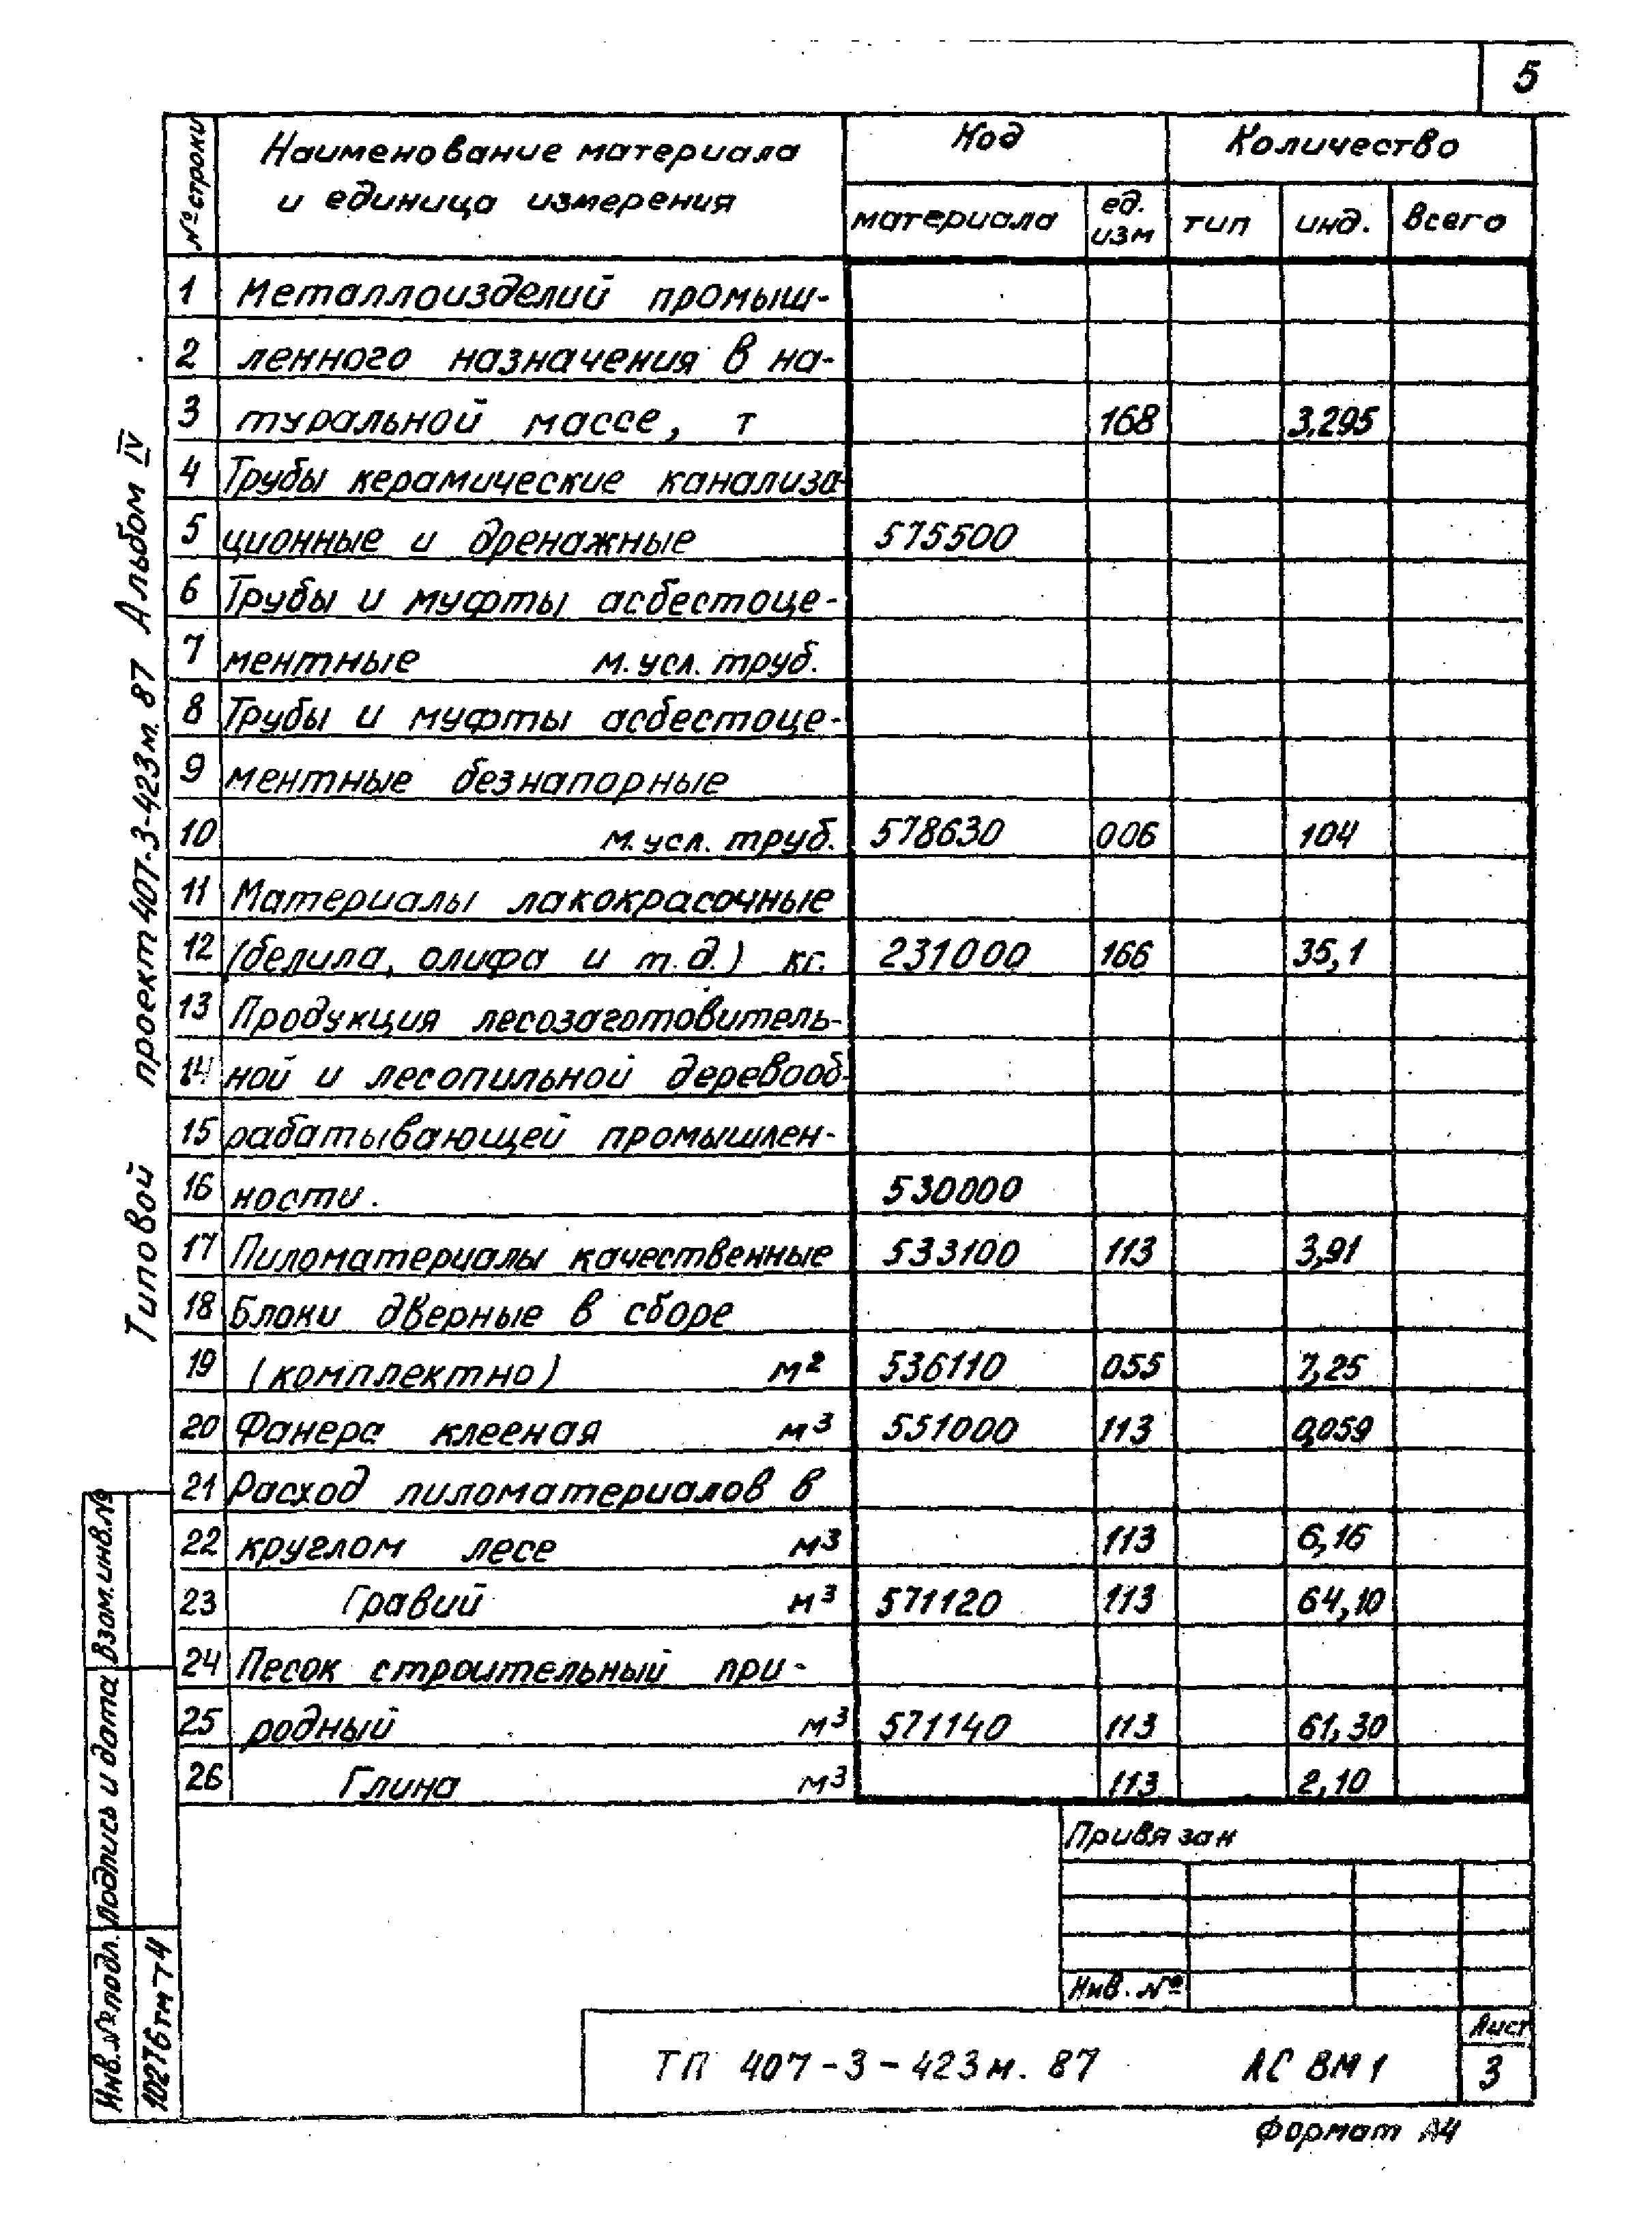 5
№ строки
Наименование материала
и единица измерения
Код
Количество
материала
ед. изм
тип
инд.
всего
1 Металлоизделий промыш-
2 ленного назначения в на-
3 туральной массе, т 168 3,295
4 Трубы керамические канализа-
5 ционные и дренажные 575500
6 Трубы и муфты асбестоце-
7 ментные м. усл. труб.
8 Трубы и муфты асбестоце-
9 ментные безнапорные
10 м. усл. труб. 578630 006 104
11 Материалы лакокрасочные
12 (белила, олифа и т.д.) кг. 231000 166 35,1
13 Продукция лесозаготовитель-
14 ной и лесопильной деревооб-
15 рабатывающей промышлен-
16 ности. 530000
17 Пиломатериалы качественные 533100 113 3,91
18 Блоки дверные в сборе
19 (комплектно) м2 536110 055 7,25
20 Фанера клееная м3 551000 113 0,059
21 Расход пиломатериалов в
22 круглом лесе м3 113 6,16
23 Гравий м3 571120 113 64,10
24 Песок строительный при-
25 родный м3 571140 113 61,30
26 Глина м3 113 2,10
Типовой проект 407-3-423м. 87 Альбом IV
Взам. инв. №
Подпись и дата
Инв. № подл.
10276тм-т4
Привязан
Инв. №
ТП 407-3-423м. 87 АС ВМ1
Лист
3
Формат А4